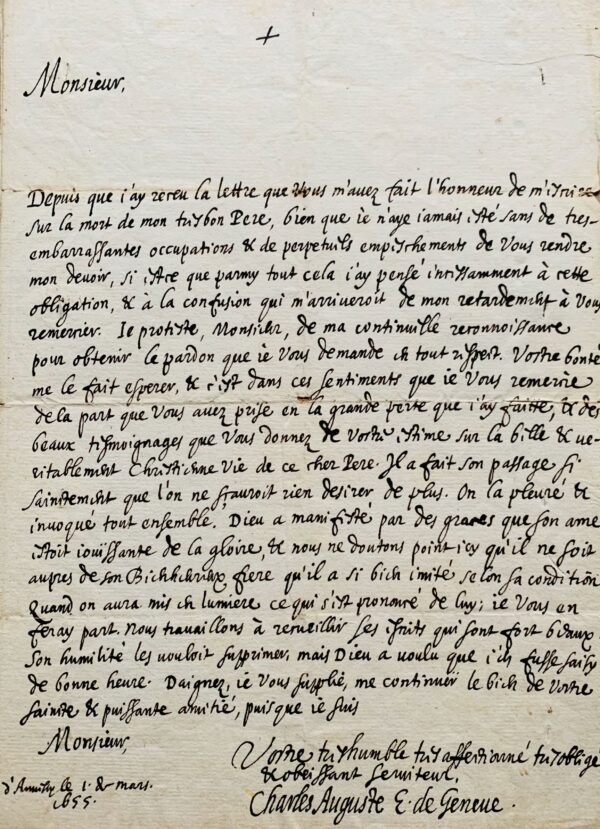 Monsieur,
Depuis que i'ay receu la lettre que Vous m'avez fait l'honneur de m'iscrire
sur la mort de mon tresbon Pere, bien que ie n'aye iamais esté sans de tres-
embarrassantes occupations & de perpetuels empeschements de Vous rendre
mon devoir, si estce que parmy tout cela i'ay pensé incessamment à cette
obligation, & à la confusion qui m'arriveroit de mon retardement à Vous
remercier. Ie proteste, Monsieur, de ma continuelle reconnoissance
pour obtenir le pardon que ie Vous demande en tout respect. Vostre bonté
me le fait esperer, & c'est dans ces sentiments que ie Vous remercie
de la part que Vous avez prise en la grande perte que i'ay faitte, & des
beaux tesmoignages que Vous donnez de Vostre estime sur la belle & ve-
ritablement Christienne Vie de ce cher Pere. Il a fait son passage si
sainctement que l'on ne sçauroit rien desirer de plus. On la pleuré &
invoqué tout ensemble. Dieu a manifesté par des graces que son ame
estoit iouissante de la gloire, & nous ne doutons point icy qu'il ne soit
aupres de son Bienheureux frere qu'il a si bien imité selon sa condition
Quand on aura mis en lumiere ce qui s'est prononcé de luy; ie Vous en
feray part. Nous travaillons à recueillir ses escrits qui sont fort beaux.
Son humilité les vouloit supprimer, mais Dieu a voulu que i'en fusse saisy
de bonne heure. Daignez, ie Vous supplie, me continuer le bien de Vostre
sainte & puissante amitié, puis que ie suis
Monsieur,
Vostre tres humble tres affectionné tres obligé
& obeissant serviteur.
d'Annissy le 1. de mars.
1655.
Charles Auguste E. de Geneve.